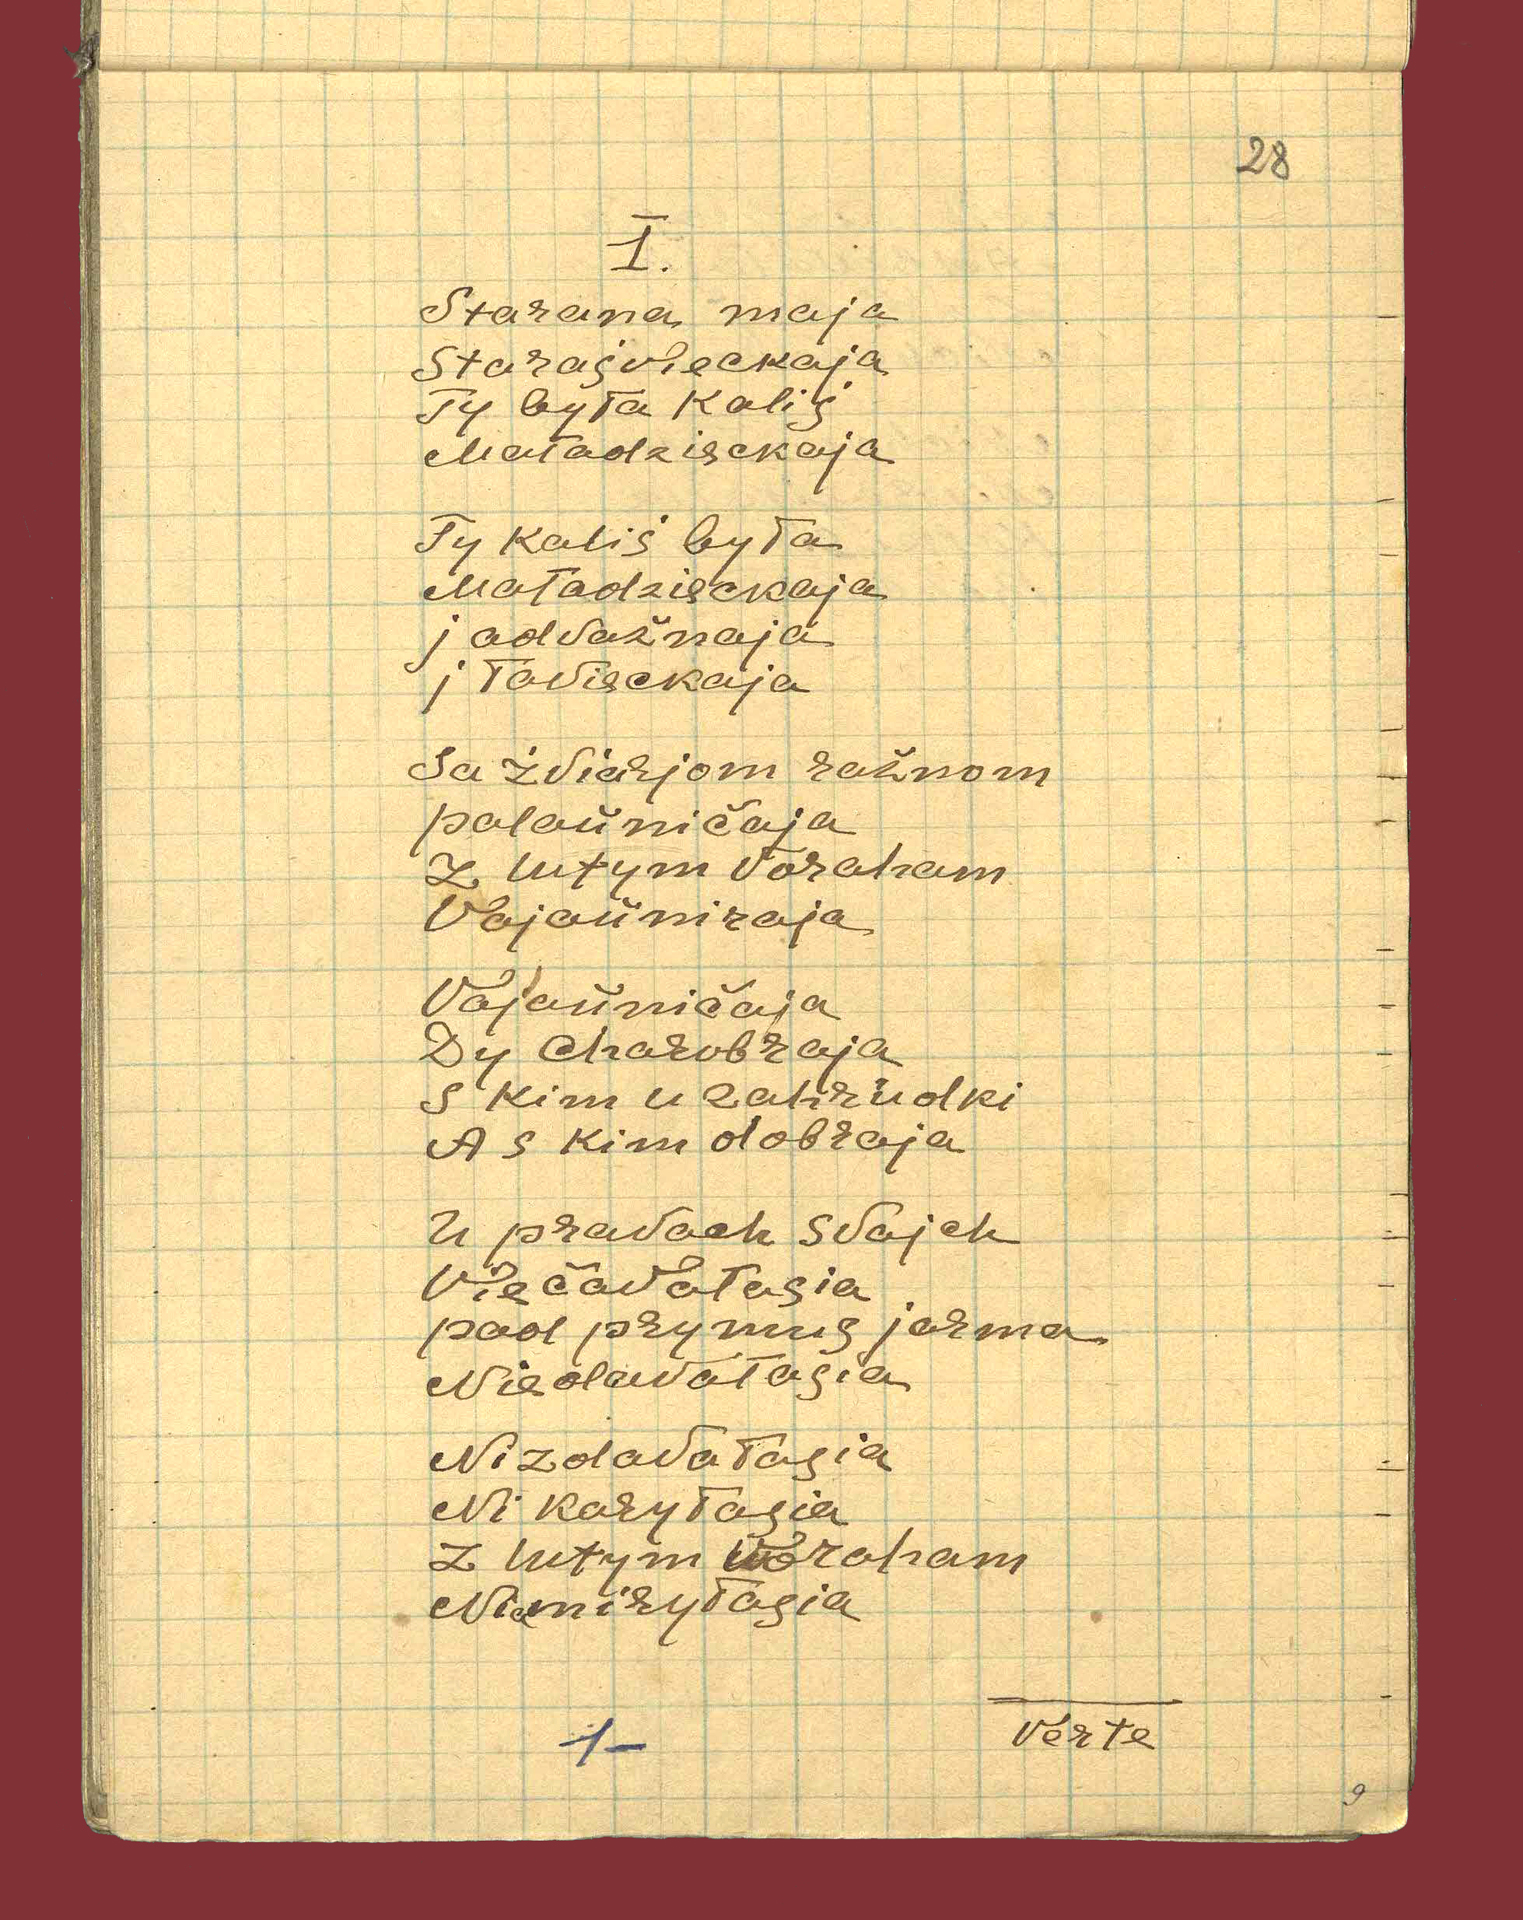 28
I.
Starana maja
Staraśvieckaja
Ty była kaliś
Maładzieckaja
Ty kaliś była
Maładzieckaja
j advažnaja
j łavieckaja
Sa źviarjomražnom
palaŭničaja
Z lutym voraham
Vajaŭniraja
Vajaŭničaja
Dy charobraja
S kim u zahrudki
A s kim dobraja
U pravach svajch
Viečavałasia
pad prymus jarma
Niedavałasia
Nizdavałasia
Ni karyłasia
Z lutym voraham
Niamiryłasia
1-
Verte
9